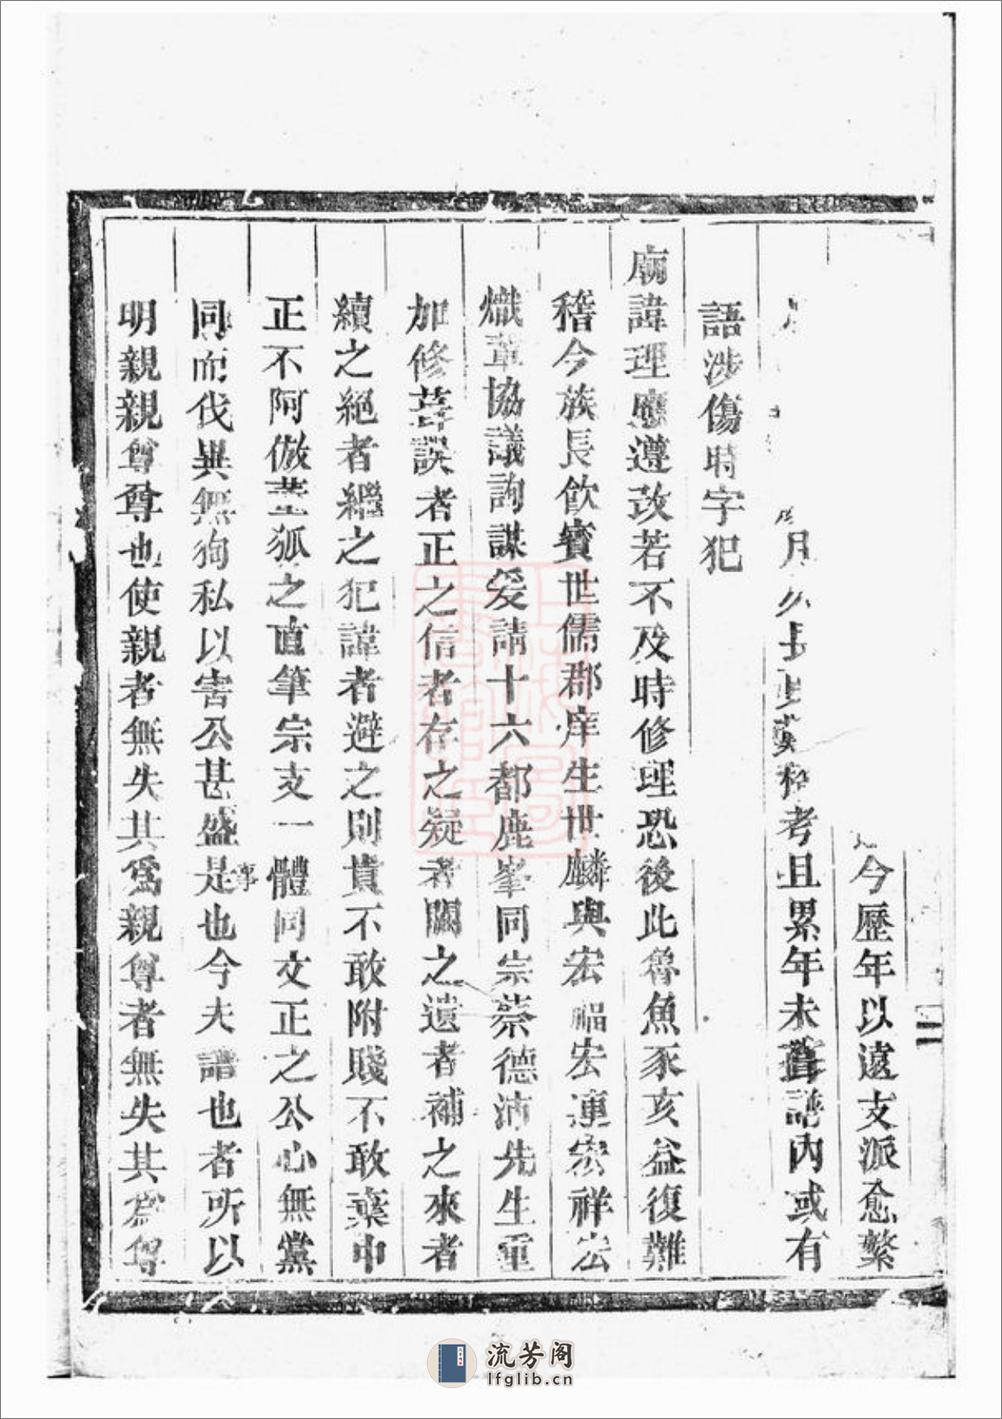 今歷年以遠支派愈繁
考且累年未舊譜內或有
語涉傷時字犯
廟諱理應遵改若不及時修理恐後此魯魚豕亥益復難
稽今族長飲賓世儒郡庠生世麟與宏福宏運宏祥宏
熾輩協議詢謀爰請十六都鹿峯同宗蔡德沛先生重
加修葺誤者正之信者存之疑者闕之遺者補之來者
續之絕者繼之犯諱者避之則貴不敢附賤不敢棄中
正不阿倣董狐之直筆宗支一體同文正之公心無黨
同而伐異無狥私以害公甚盛是也今夫譜也者所以
事
明親親尊尊也使親者無失其為親尊者無失其為尊
二
流芳阁
lfglib.cn